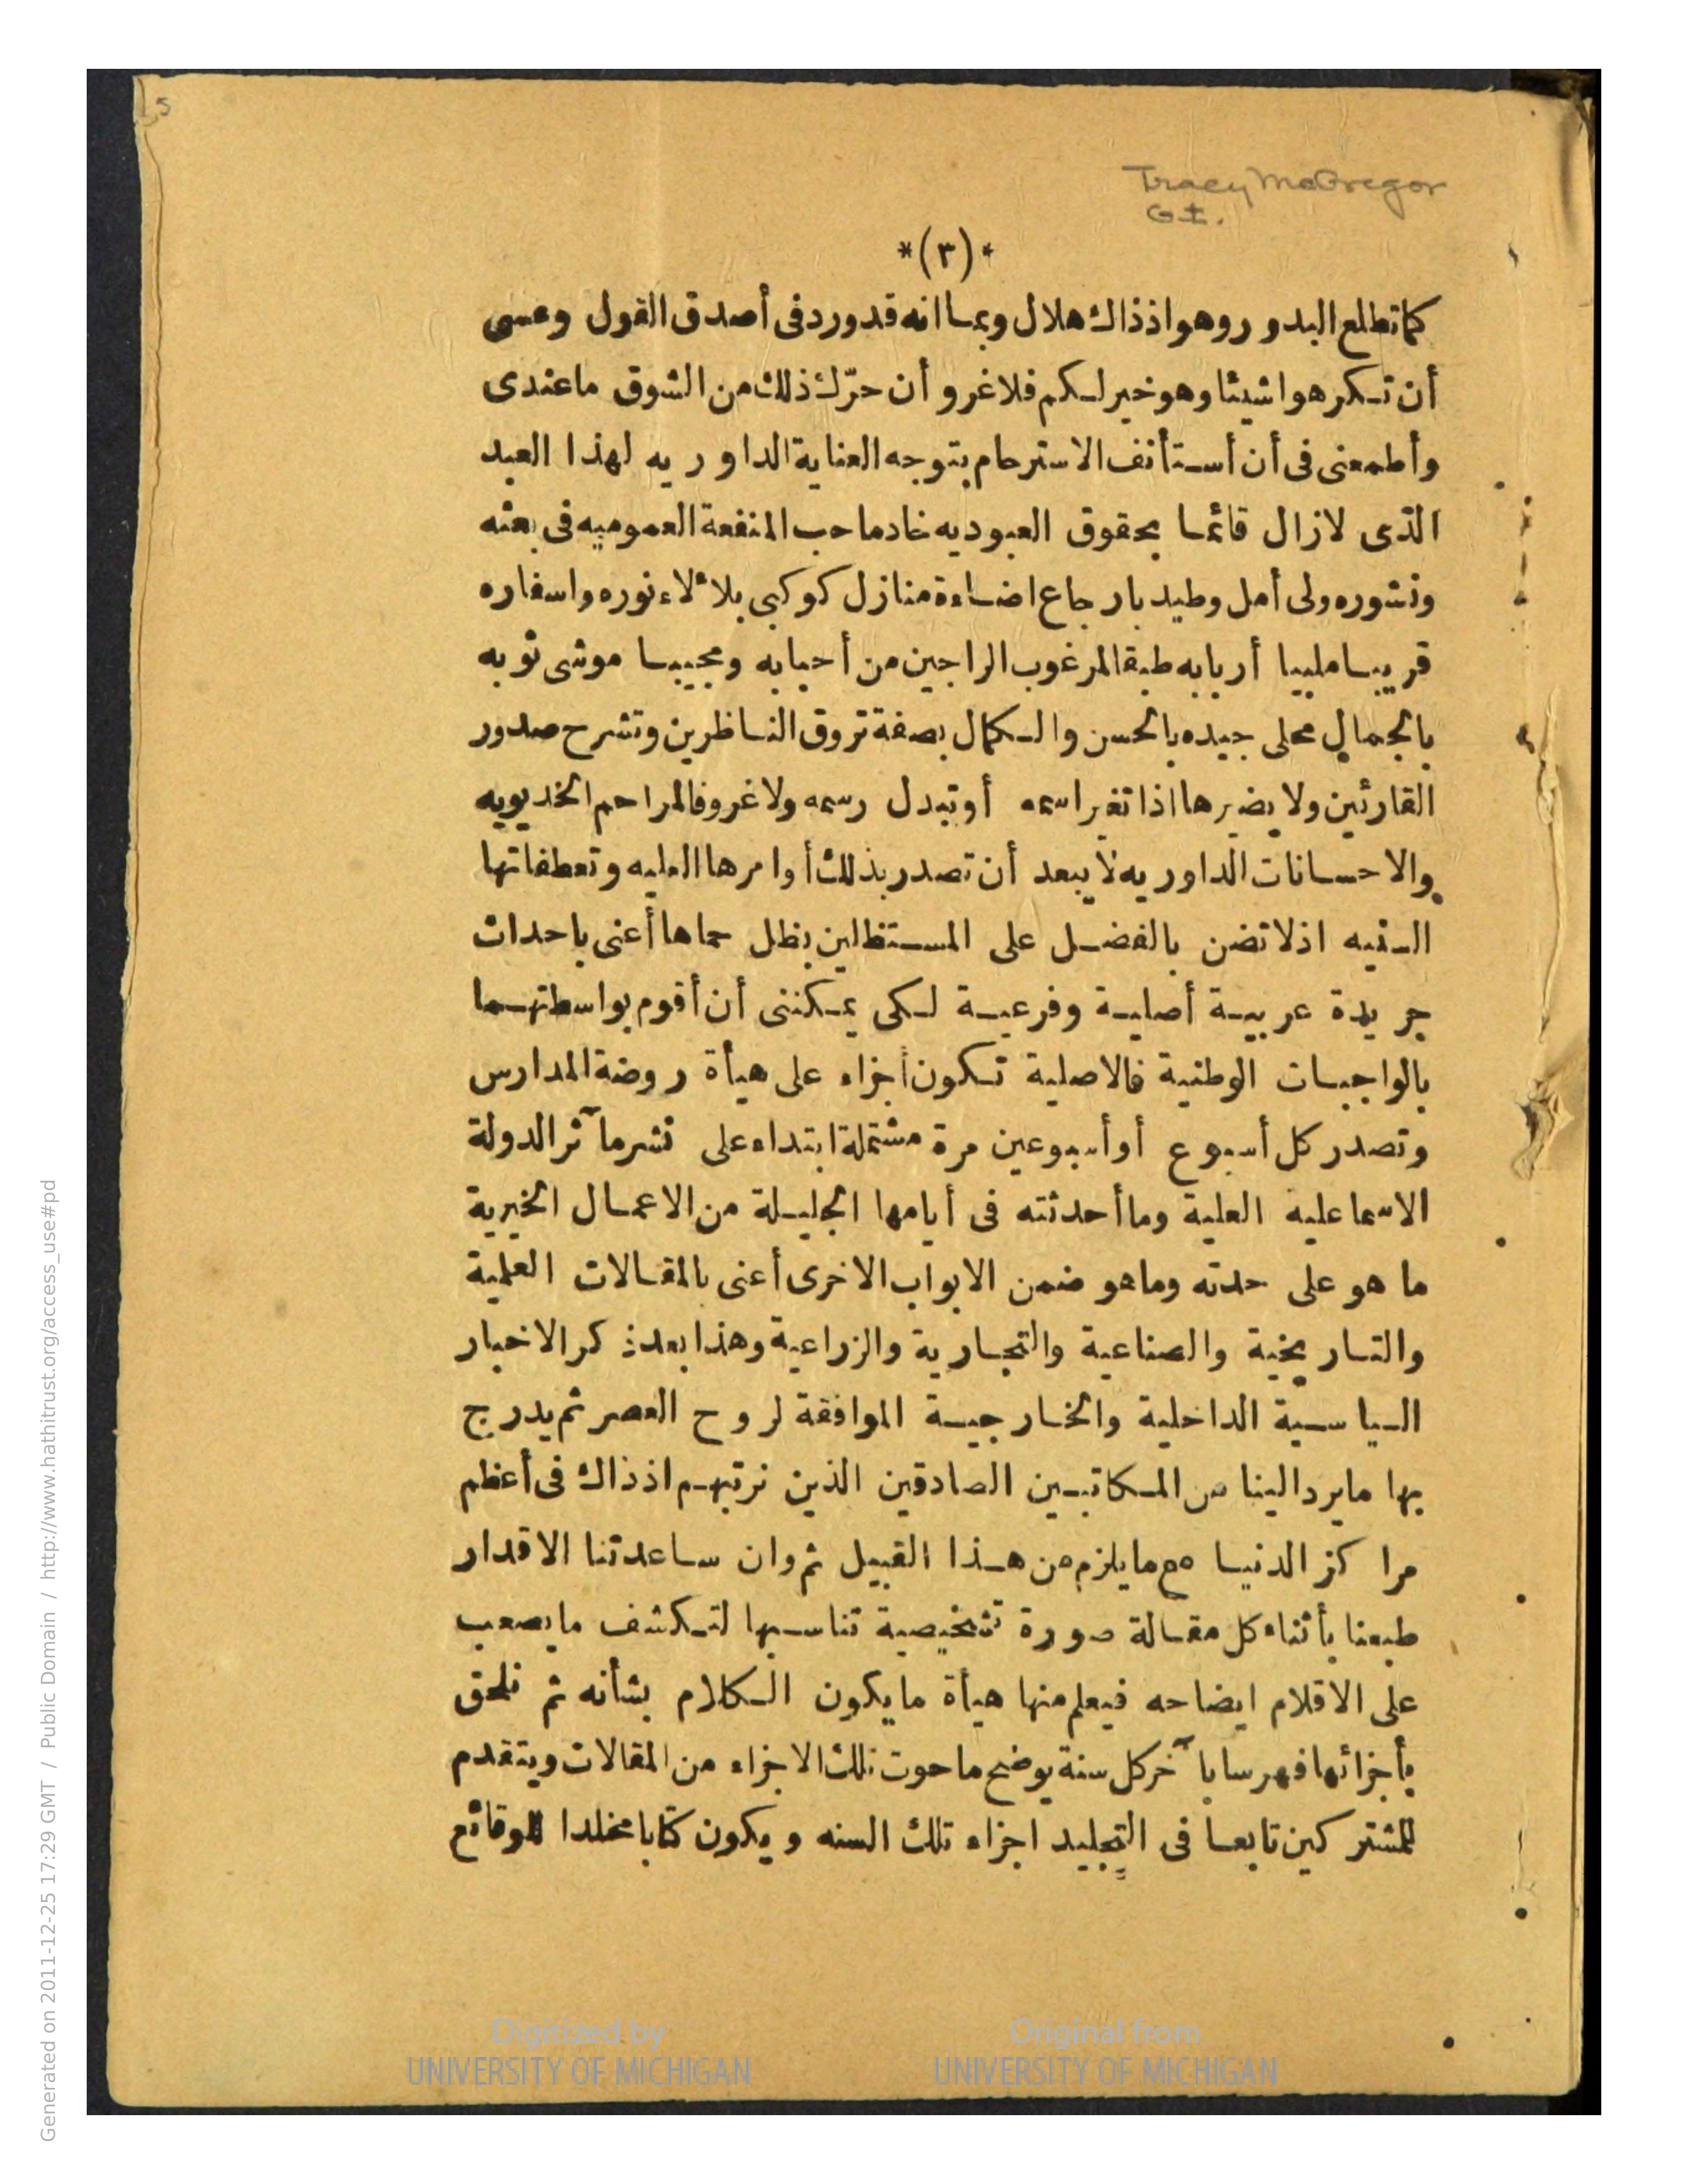 5
Tracy McGregor
Gt.
*(٣)*
كما تطلع البدور وهو اذ ذاك هلال وبما انه قد ورد فى أصدق القول وعسى
أن تكرهوا شيئا وهو خير لكم فلا غرو أن حرّك ذلك من الشوق ما عندى
وأطمعنى فى أن أستأنف الاسترحام بتوجه العناية الداوريه لهذا العبد
الذى لازال قائما بحقوق العبوديه خادما حب المنفعة العموميه فى بعثه
ونشوره ولى أمل وطيد بارجاع اضاءة منازل كوكبى بلا ٔلاء نوره واسفاره
قريبا مليا أربابه طبقا لمرغوب الراجين من أحبابه ومجيبا موشى ثوبه
بالجمال محلى جيده بالحسن والكمال بصفة تروق الناظرين وتشرح صدور
القارئين ولا يضيرها اذا تغير اسمه أو تبدل رسمه ولا غرو فالمراحم الخديويه
والاحسانات الداوريه لا يبعد أن تصدر بذلك أوامرها العليه وتعطفاتها
السنيه اذ لا تضن بالفضل على المستظلين بظل حماها أعنى باحداث
جريدة عربية أصلية وفرعية لكى يمكننى أن أقوم بواسطتهما
بالواجبات الوطنية فالاصلية تكون أجزاء على هيأة روضة المدارس
وتصدر كل أسبوع أو أسبوعين مرة مشتملة ابتداء على نشر مآثر الدولة
الاسماعليه العلية وما أحدثته فى أيامها الجليلة من الاعمال الخيرية
ما هو على حدته وما هو ضمن الابواب الاخرى أعنى بالمقالات العلمية
والتاريخية والصناعية والتجارية والزراعية وهذا بعد ذكر الاخبار
السياسية الداخلية والخارجية الموافقة لروح العصر ثم يدرج
بها ما يرد الينا من المكاتبين الصادقين الذين نرتبهم اذ ذاك فى أعظم
مراكز الدنيا مع ما يلزم من هذا القبيل ثم وان ساعدتنا الاقدار
طبعنا بأثناء كل مقالة صورة تشخيصية تناسبها لتكشف ما يصعب
على الاقلام ايضاحه فيعلم منها هيأة ما يكون الكلام بشأنه ثم نلحق
بأجزائها فهرسا بآخر كل سنة يوضح ما حوت تلك الاجزاء من المقالات ويتقدم
للمشتركين تابعا فى التجليد اجزاء تلك السنه ويكون كتابا مخلدا للوقائع
Generated on 2011-12-25 17:29 GMT / Public Domain / http://www.hathitrust.org/access_use#pd
Digitized by
UNIVERSITY OF MICHIGAN
Original from
UNIVERSITY OF MICHIGAN